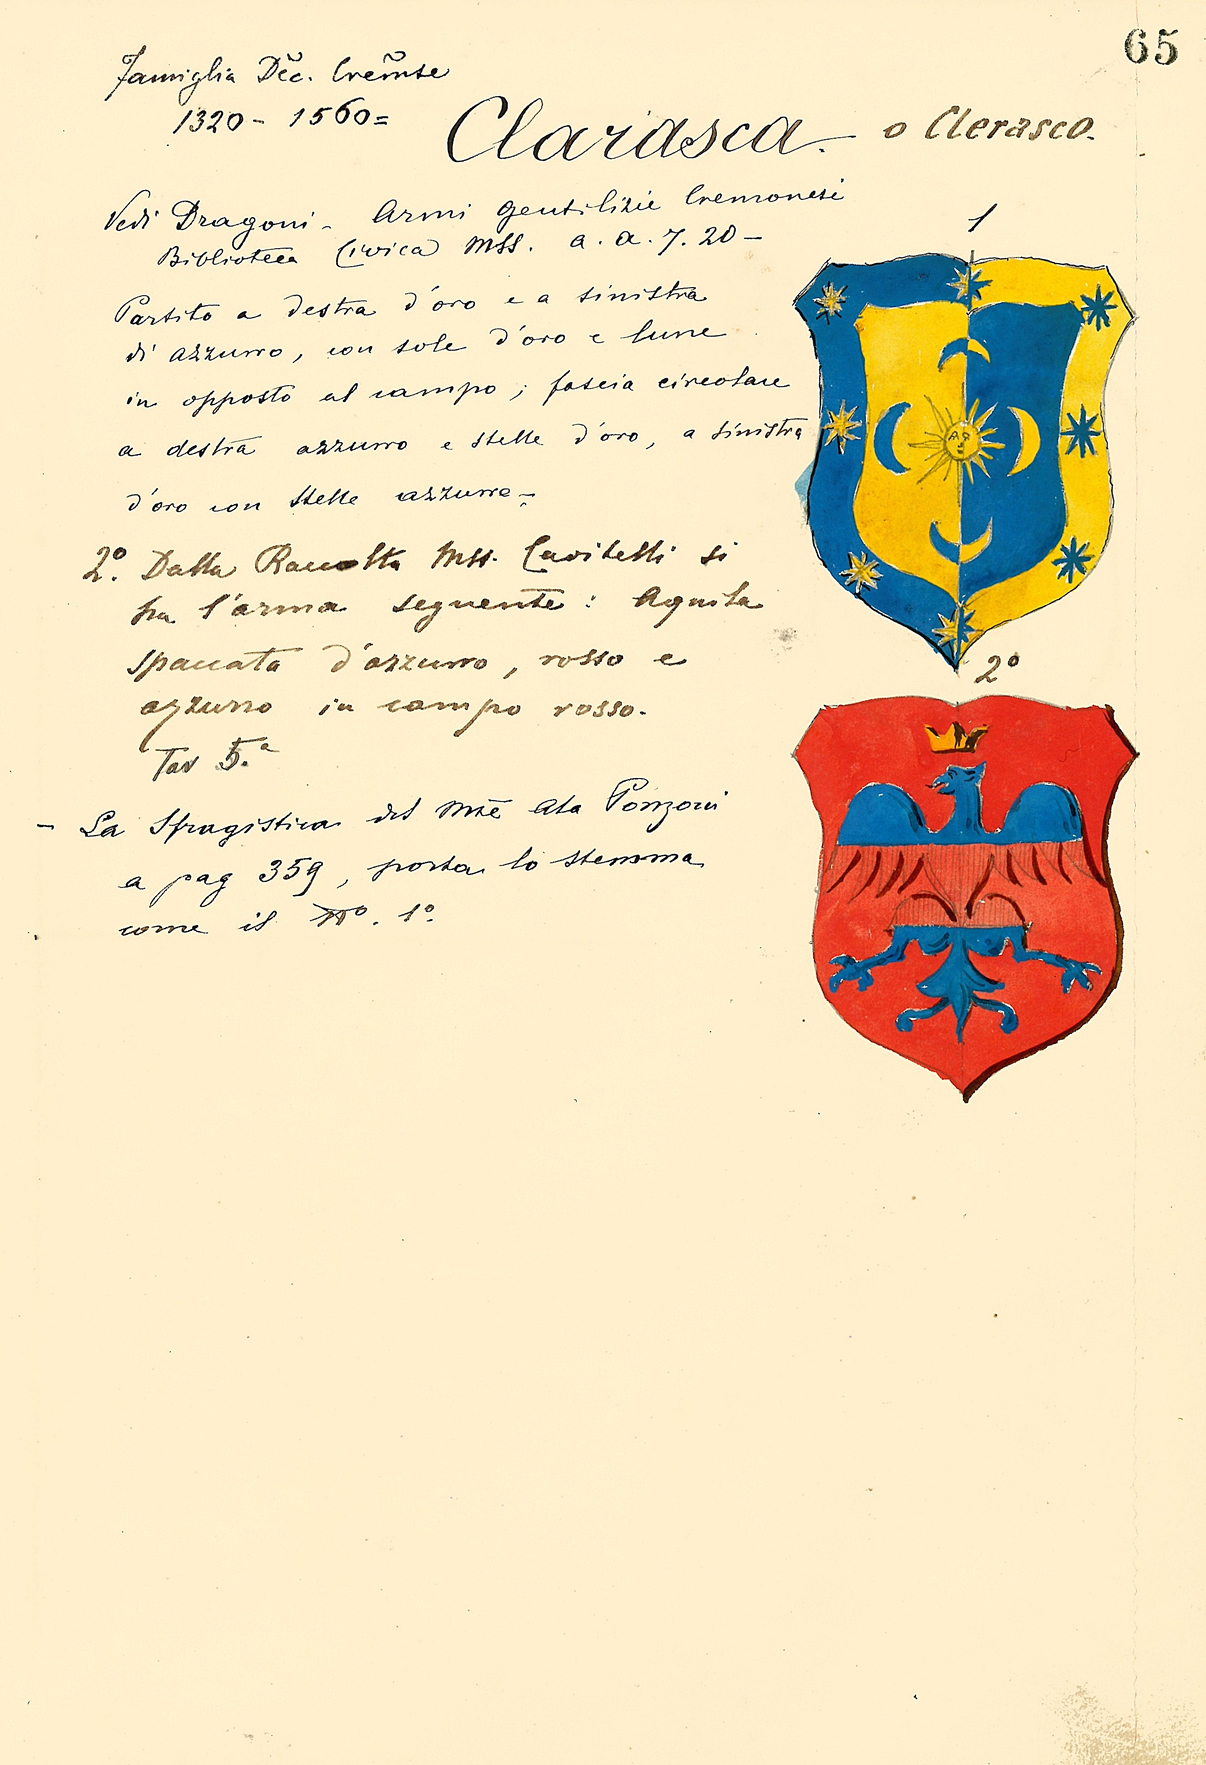 65
Famiglia Dec. Cremse
1320 - 1560 =
Clarasca. - o Clerasco.
Vedi Dragoni - Armi gentilizie Cremonesi
Biblioteca Civica MSS. a. a. 7. 20 -
1
Partito a destra d'oro e a sinistra
di azzurro, con sole d'oro e lune
in opposto al campo; fascia circolare
a destra azzurro e stelle d'oro, a sinistra
d'oro con stelle azzurre -
2º. Dalla Raccolta Mss. Cavitelli si
ha l'arma seguente: Aquila
spaccata d'azzurro, rosso e
azzurro in campo rosso.
Tav 5.ª
2º
- La Sfragistica del Mse Ala Ponzoni
a pag 359, porta lo stemma
come il Nº. 1º.